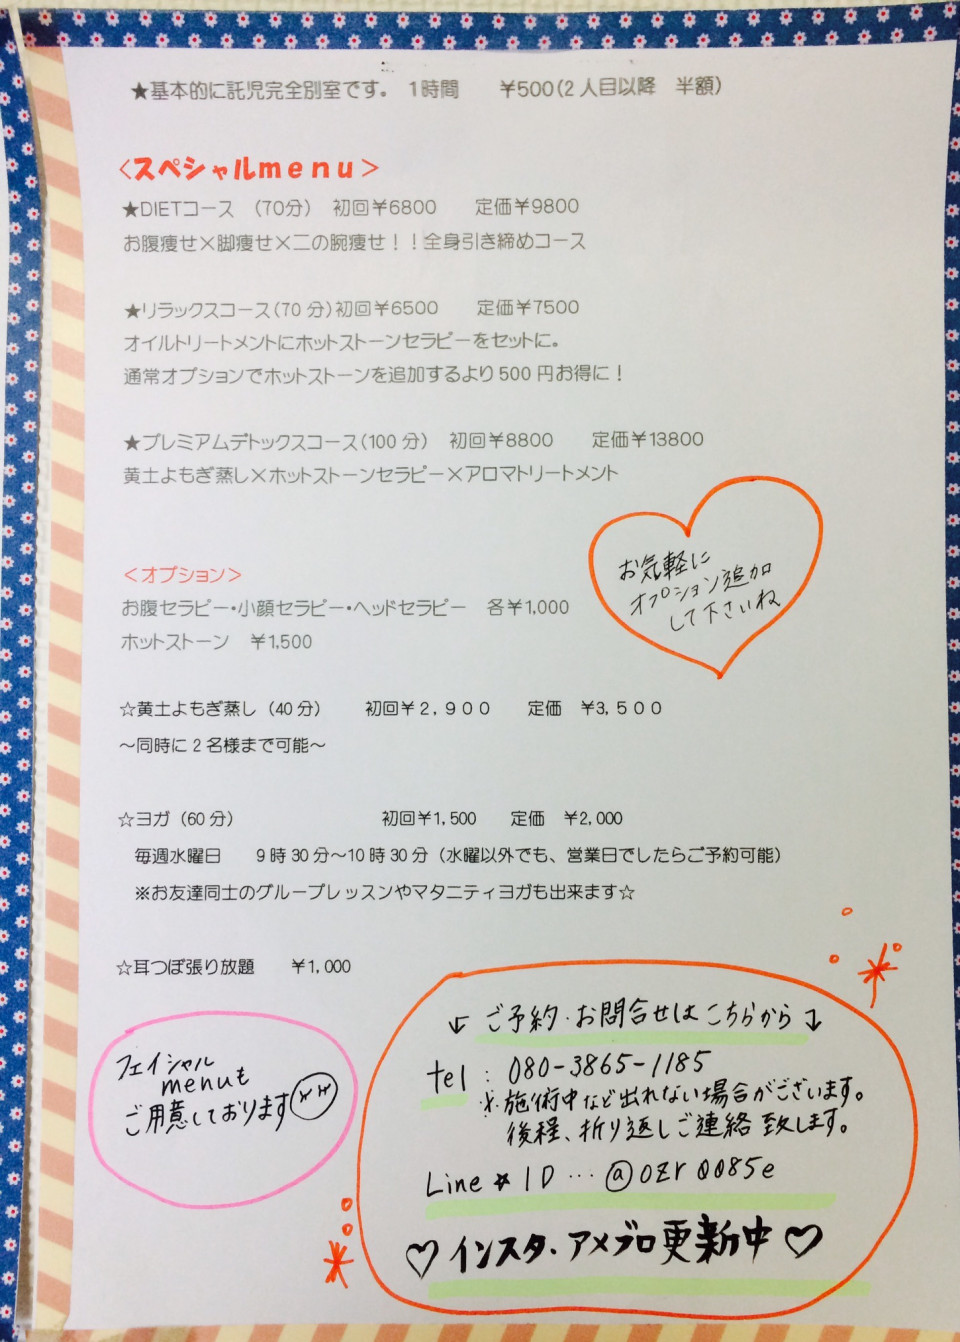 ★基本的に託児完全別室です。 1時間 ¥500(2人目以降 半額)
<スペシャルmenu>
★DIETコース (70分) 初回¥6800 定価¥9800
お腹痩せ×脚痩せ×二の腕痩せ！！全身引き締めコース
★リラックスコース(70分)初回¥6500 定価¥7500
オイルトリートメントにホットストーンセラピーをセットに。
通常オプションでホットストーンを追加するより500円お得に！
★プレミアムデトックスコース(100分) 初回¥8800 定価¥13800
黄土よもぎ蒸し×ホットストーンセラピー×アロマトリートメント
お気軽に
オプション追加
して下さいね
<オプション>
お腹セラピー・小顔セラピー・ヘッドセラピー 各¥1,000
ホットストーン ¥1,500
☆黄土よもぎ蒸し (40分) 初回¥2,900 定価 ¥3,500
～同時に2名様まで可能～
☆ヨガ (60分) 初回¥1,500 定価 ¥2,000
毎週水曜日 9時30分～10時30分 (水曜以外でも、営業日でしたらご予約可能)
※お友達同士のグループレッスンやマタニティヨガも出来ます☆
☆耳つぼ張り放題 ¥1,000
フェイシャル
menuも
ご用意しております
↙ ご予約・お問合せはこちらから ↘
tel : 080-3865-1185
※施術中など出れない場合がございます。
後程、折り返しご連絡致します。
Line☆ID…@ozr0085e
♡インスタ・アメブロ更新中♡